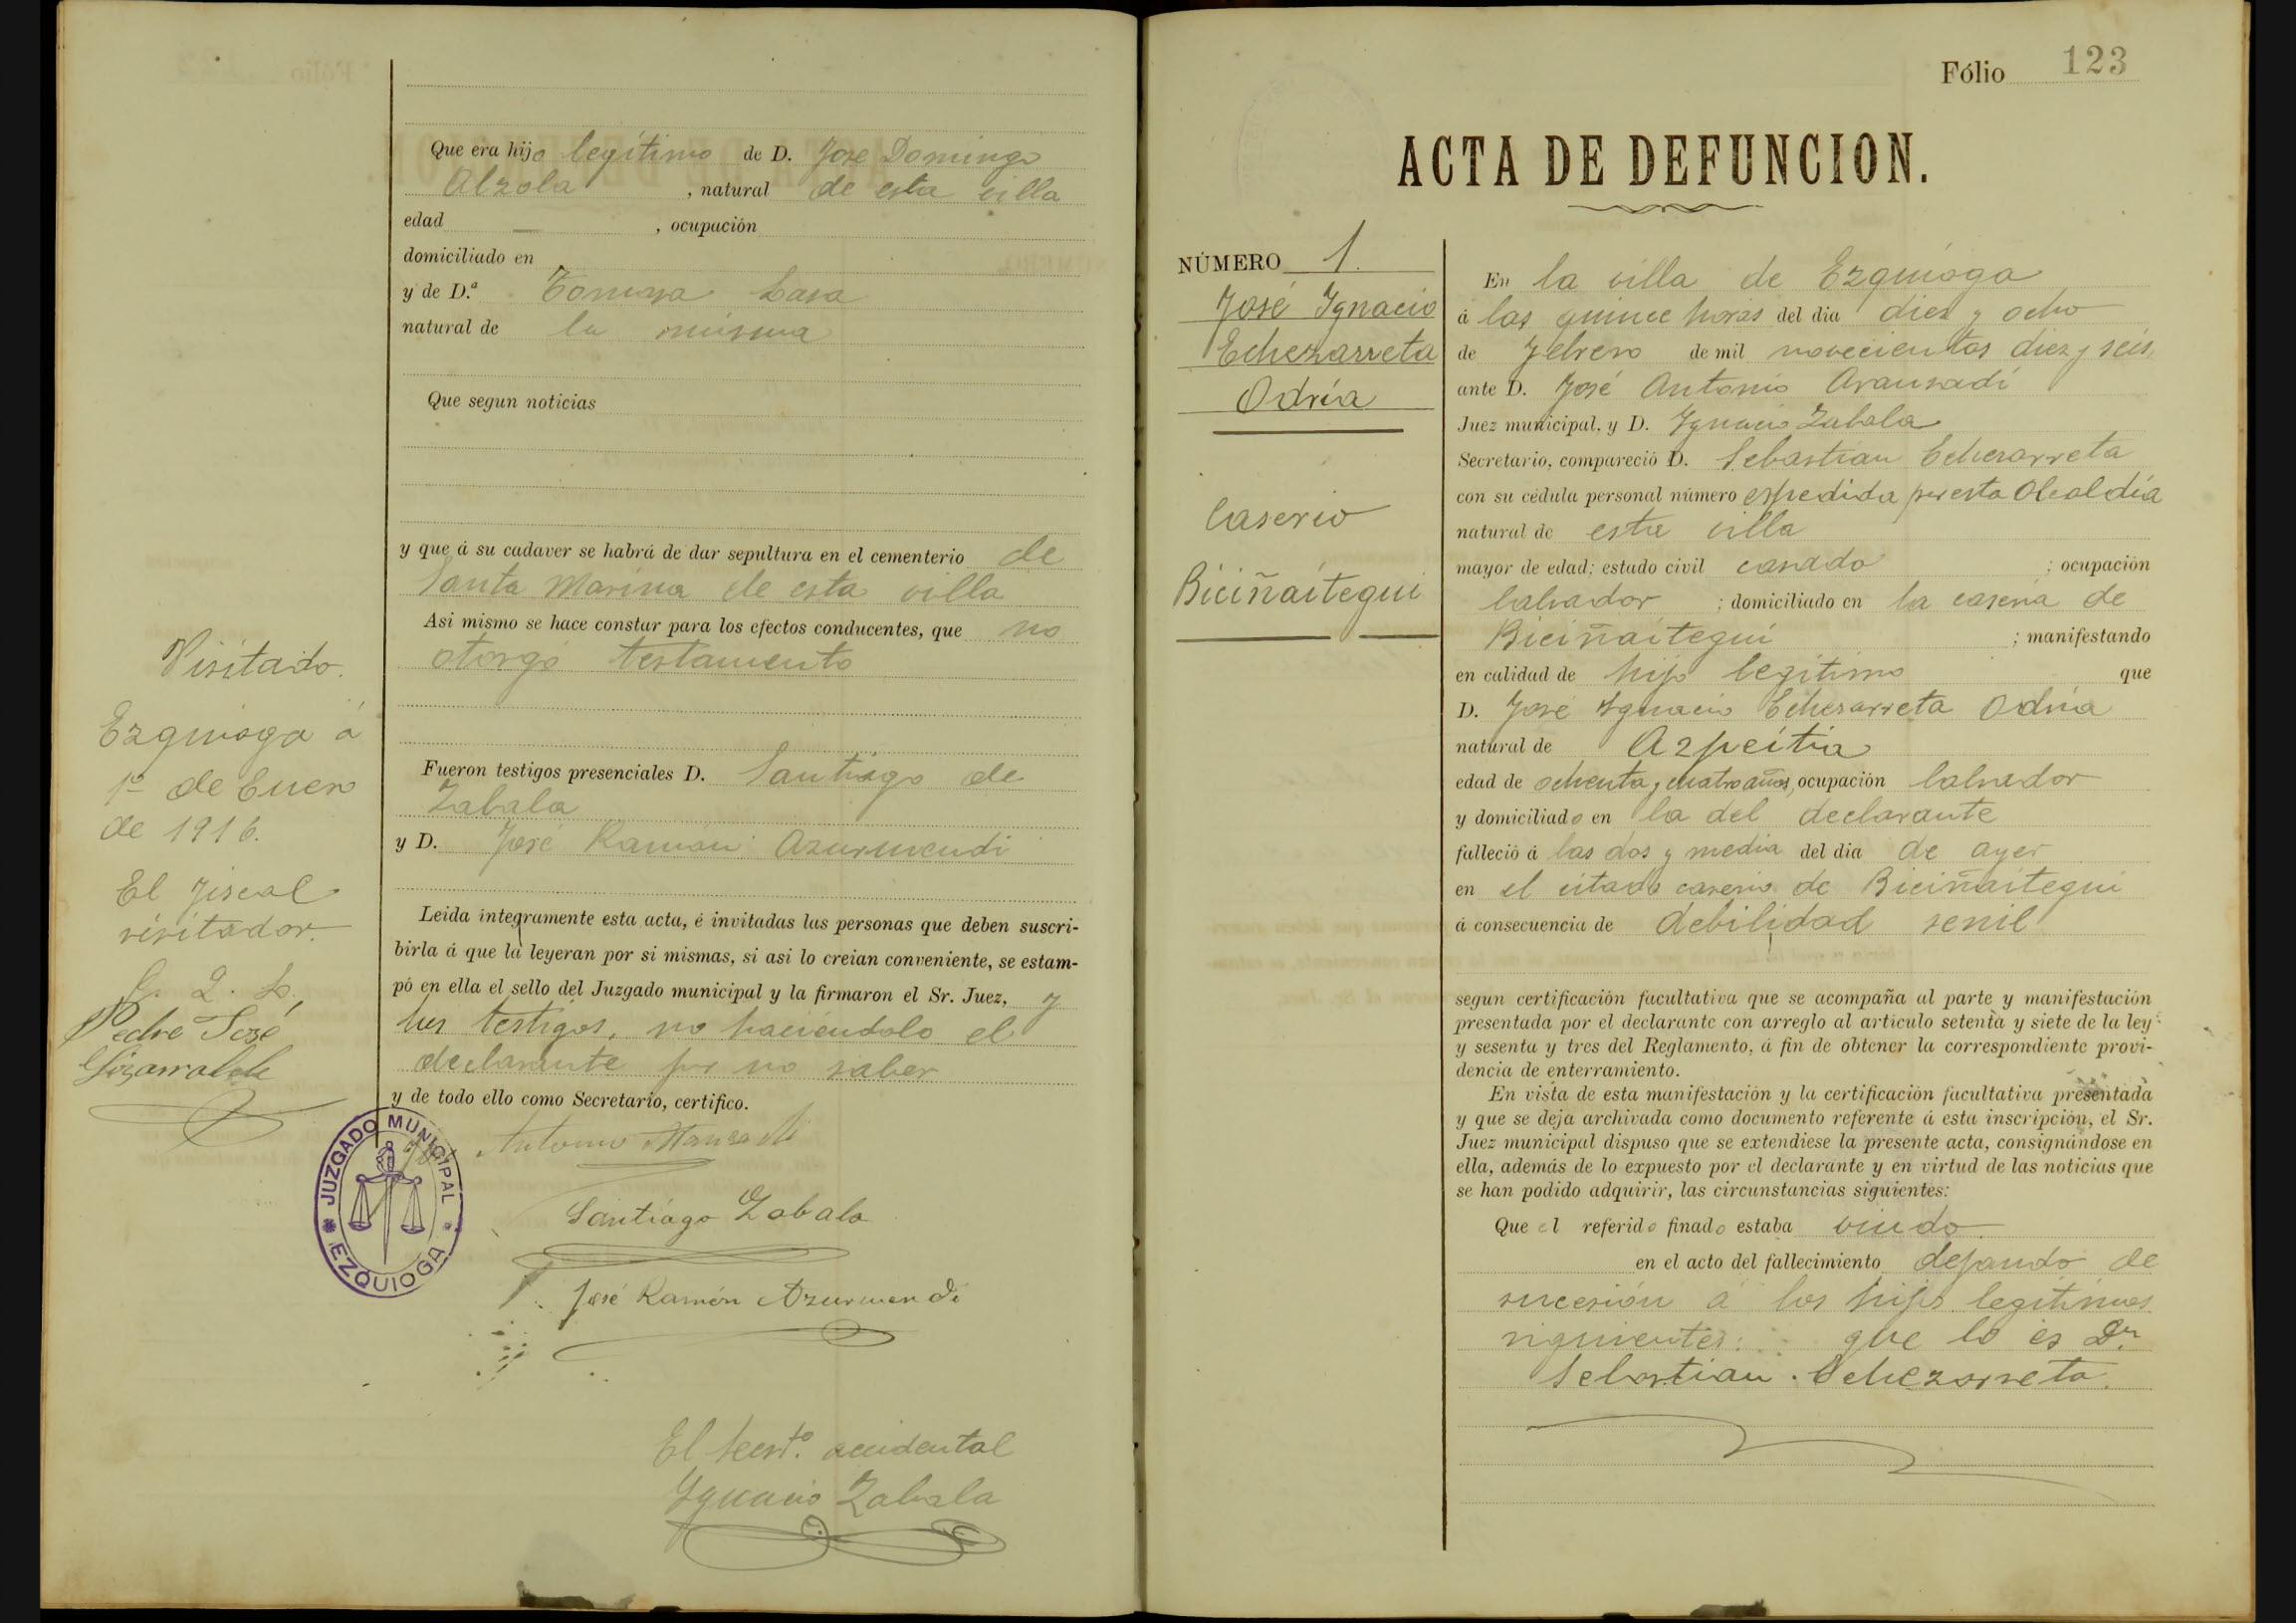 Que era hijo legítimo de D. José Domingo
Alzola, natural de esta villa
edad —, ocupación
domiciliado en
y de D.ª Tomasa Lasa
natural de la misma
Que segun noticias
y que á su cadaver se habrá de dar sepultura en el cementerio de
Santa Marina de esta villa
Asi mismo se hace constar para los efectos conducentes, que no
otorgó testamento
Fueron testigos presenciales D. Santiago de
Zabala
y D. José Ramón Azurmendi
Leida íntegramente esta acta, é invitadas las personas que deben suscri-
birla á que la leyeran por si mismas, si asi lo creian conveniente, se estam-
pó en ella el sello del Juzgado municipal y la firmaron el Sr. Juez, y
los testigos, no haciéndolo el
declarante por no saber
y de todo ello como Secretario, certifico.
José Antonio Aranzadi
Santiago Zabala
José Ramón Azurmendi
El Secret.º accidental
Ygnacio Zabala
Visitado.
Ezquioga á
1º de Enero
de 1916.
El Fiscal
visitador.
Pedro José
Lizarralde
JUZGADO MUNICIPAL
EZQUIOGA
Fólio 123
ACTA DE DEFUNCION.
NÚMERO 1.
José Ygnacio
Echezarreta
Odria
Caserio
Biciñaitegui
En la villa de Ezquioga
á las quince horas del dia diez y ocho
de Febrero de mil novecientos diez y seis,
ante D. José Antonio Aranzadi
Juez municipal, y D. Ygnacio Zabala
Secretario, compareció D. Sebastian Echezarreta
con su cédula personal número espedida por esta Alcaldía
natural de esta villa
mayor de edad; estado civil casado ; ocupación
labrador ; domiciliado en la caseria de
Biciñaitegui ; manifestando
en calidad de hijo legítimo que
D. José Ygnacio Echezarreta Odria
natural de Azpeitia
edad de ochenta y cuatro años, ocupación labrador
y domiciliado en la del declarante
falleció á las dos y media del dia de ayer
en el citado caserio de Biciñaitegui
á consecuencia de debilidad senil
segun certificación facultativa que se acompaña al parte y manifestación
presentada por el declarante con arreglo al artículo setenta y siete de la ley
y sesenta y tres del Reglamento, á fin de obtener la correspondiente provi-
dencia de enterramiento.
En vista de esta manifestación y la certificación facultativa presentada
y que se deja archivada como documento referente á esta inscripción, el Sr.
Juez municipal dispuso que se extendiese la presente acta, consignándose en
ella, además de lo expuesto por el declarante y en virtud de las noticias que
se han podido adquirir, las circunstancias siguientes:
Que el referido finado estaba viudo
en el acto del fallecimiento dejando de
sucesión á los hijos legítimos
siguientes: que lo es Dn
Sebastian Echezarreta.